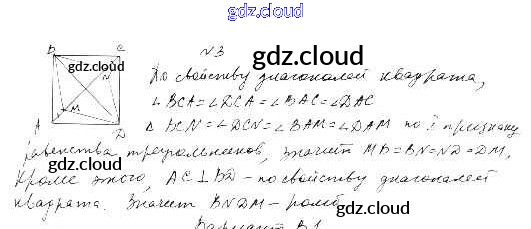 gdz.cloud
№3
B C
gdz.cloud
N
M
A D
gdz.cloud
По свойству диагоналей квадрата,
∠BCA = ∠DCA = ∠BAC = ∠DAC
△BCN = △DCN = △BAM = △DAM по I признаку
равенства треугольников, значит MB = BN = ND = DM,
gdz.cloud
gdz.cloud
кроме этого, AC ⊥ BD – по свойству диагоналей
квадрата. Значит BNDM – ромб
gdz.cloud
Вариант В1